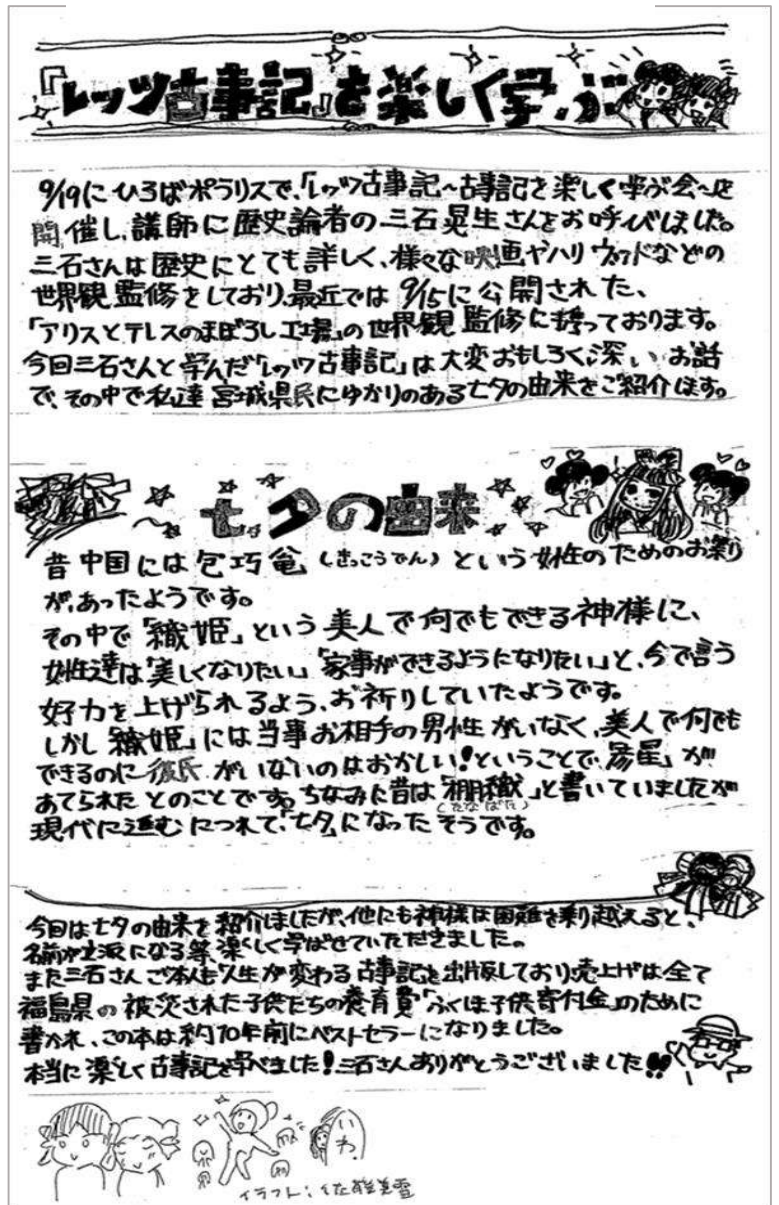 『レッツ古事記』を楽しく学ぶ
9/19にひろばポラリスで、「レッツ古事記〜古事記を楽しく学ぶ会〜を
開催し、講師に歴史論者の三石晃生さんをお呼びしました。
三石さんは歴史にとても詳しく、様々な映画やハリウッドなどの
世界観監修をしており、最近では9/15に公開された、
「アリスとテレスのまぼろし工場」の世界観監修にも携っております。
今回三石さんと学んだ「レッツ古事記」は大変おもしろく、深いお話
で、その中で私達宮城県民にゆかりのある七夕の由来をご紹介します。
七夕の由来
昔中国には乞巧奠（きっこうでん）という女性のためのお祭り
が、あったようです。
その中で「織姫」という美人で何でもできる神様に、
女性達は「美しくなりたい」「家事ができるようになりたい」と、今で言う
女子力を上げられるよう、お祈りしていたようです。
しかし「織姫」には当事お相手の男性がいなく、美人で何でも
できるのに彼氏がいないのはおかしい!ということで「彦星」が
あてられたとのことです。ちなみに昔は「棚織」と書いていましたが
（たなばた）
現代に進むにつれて、「七夕」になったそうです。
今回は七夕の由来を紹介しましたが、他にも神様は困難を乗り越えると、
名前が立派になる等、楽しく学ばせていただきました。
また三石さんご本人も「人生が変わる古事記」を出版しており、売上げは全て
福島県の被災された子供たちの養育費「ふくしま子供寄付金」のために
書かれ、この本は約10年前にベストセラーになりました。
本当に楽しく古事記を学べました!三石さんありがとうございました!!
いわ
イラスト:佐雪